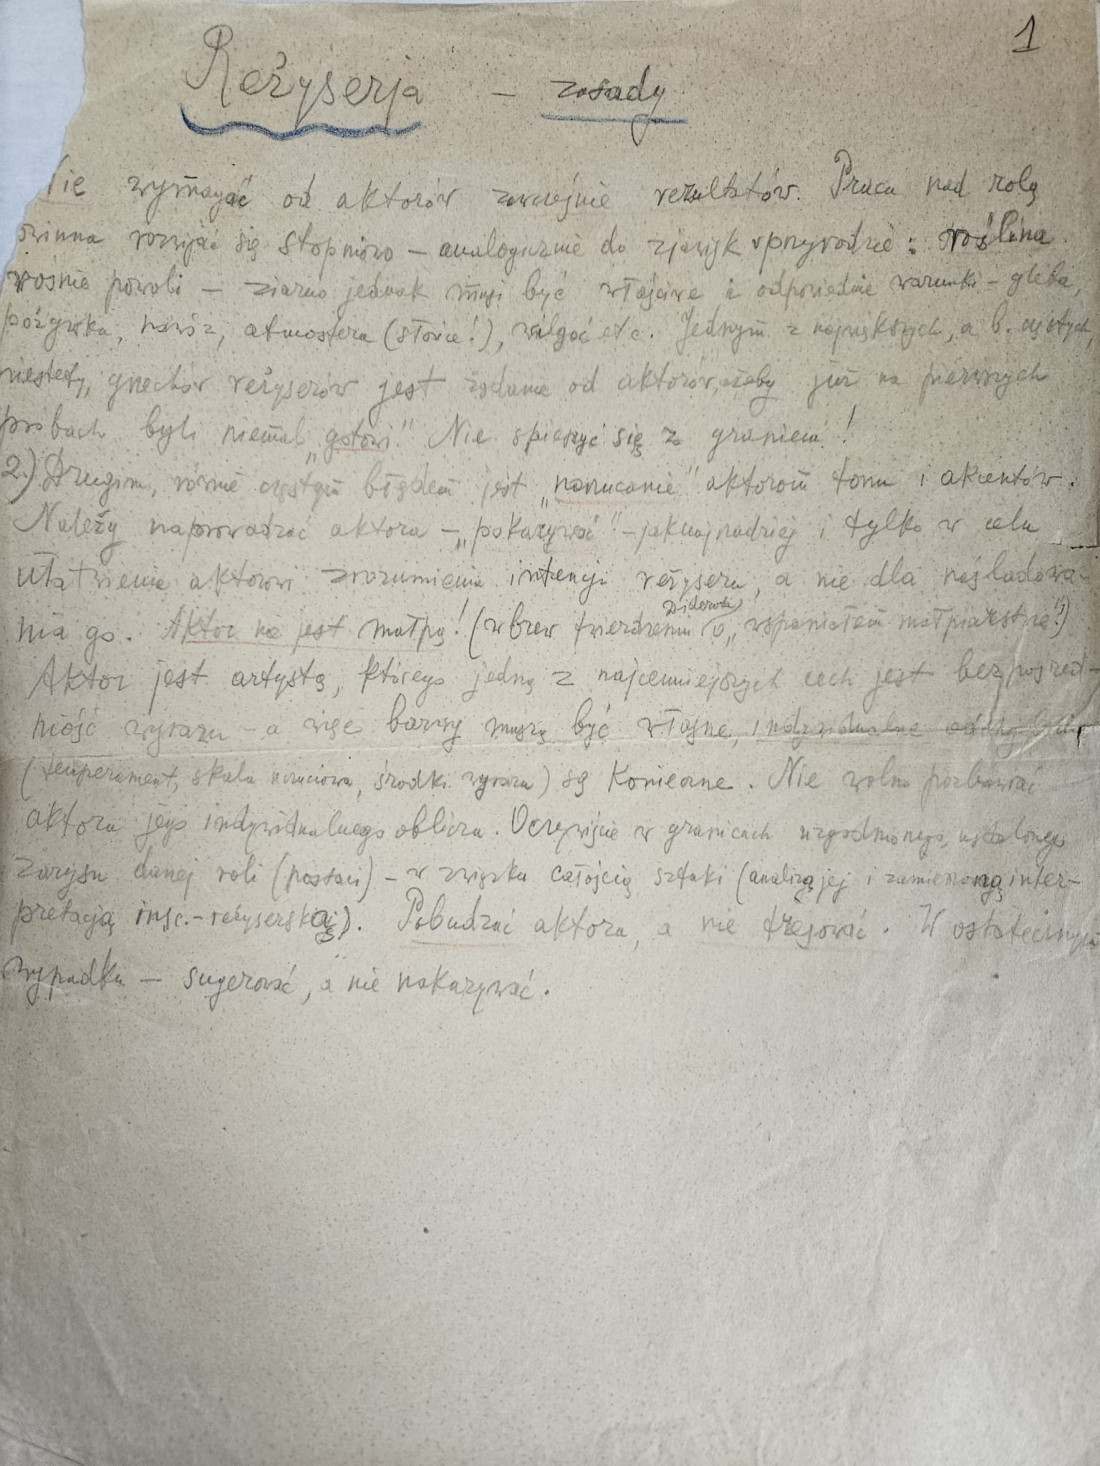 1
Reżyserja – zasady
Nie wymagać od aktorów zawcześnie rezultatów. Praca nad rolą
owinna rozwijać się stopniowo – analogicznie do zjawisk w przyrodzie: roślina
rośnie powoli – ziarno jednak musi być właściwe i odpowiednie warunki – gleba,
pożywka, nawóz, atmosfera (słońce!), wilgoć etc. Jednym z największych, a b. częstych,
niestety, grzechów reżyserów jest żądanie od aktorów, ażeby już na pierwszych
próbach byli niemal „gotowi". Nie spieszyć się z graniem!
2.) Drugim, równie częstym błędem jest „narzucanie" aktorom tonu i akcentów.
Należy naprowadzać aktora – „pokazywać" – jaknajrzadziej i tylko w celu
ułatwienia aktorowi zrozumienia intencji reżysera, a nie dla naśladowa-
nia go. Aktor nie jest małpą! (wbrew twierdzeniu Diderota o „wspaniałem małpiarstwie"!)
Aktor jest artystą, którego jedną z najcenniejszych cech jest bezpośred-
niość wyrazu – a więc barwy muszą być własne, indywidualne
(temperament, skala uczuciowa, środki wyrazu) są konieczne. Nie wolno pozbawiać
aktora jego indywidualnego oblicza. Oczywiście w granicach uzgodnionego, ustalonego
zarysu danej roli (postaci) – w związku całością sztuki (analizą jej i zamierzoną inter-
pretacją insc.-reżyserską). Pobudzać aktora, a nie tresować. W ostatecznym
wypadku – sugerować, a nie nakazywać.